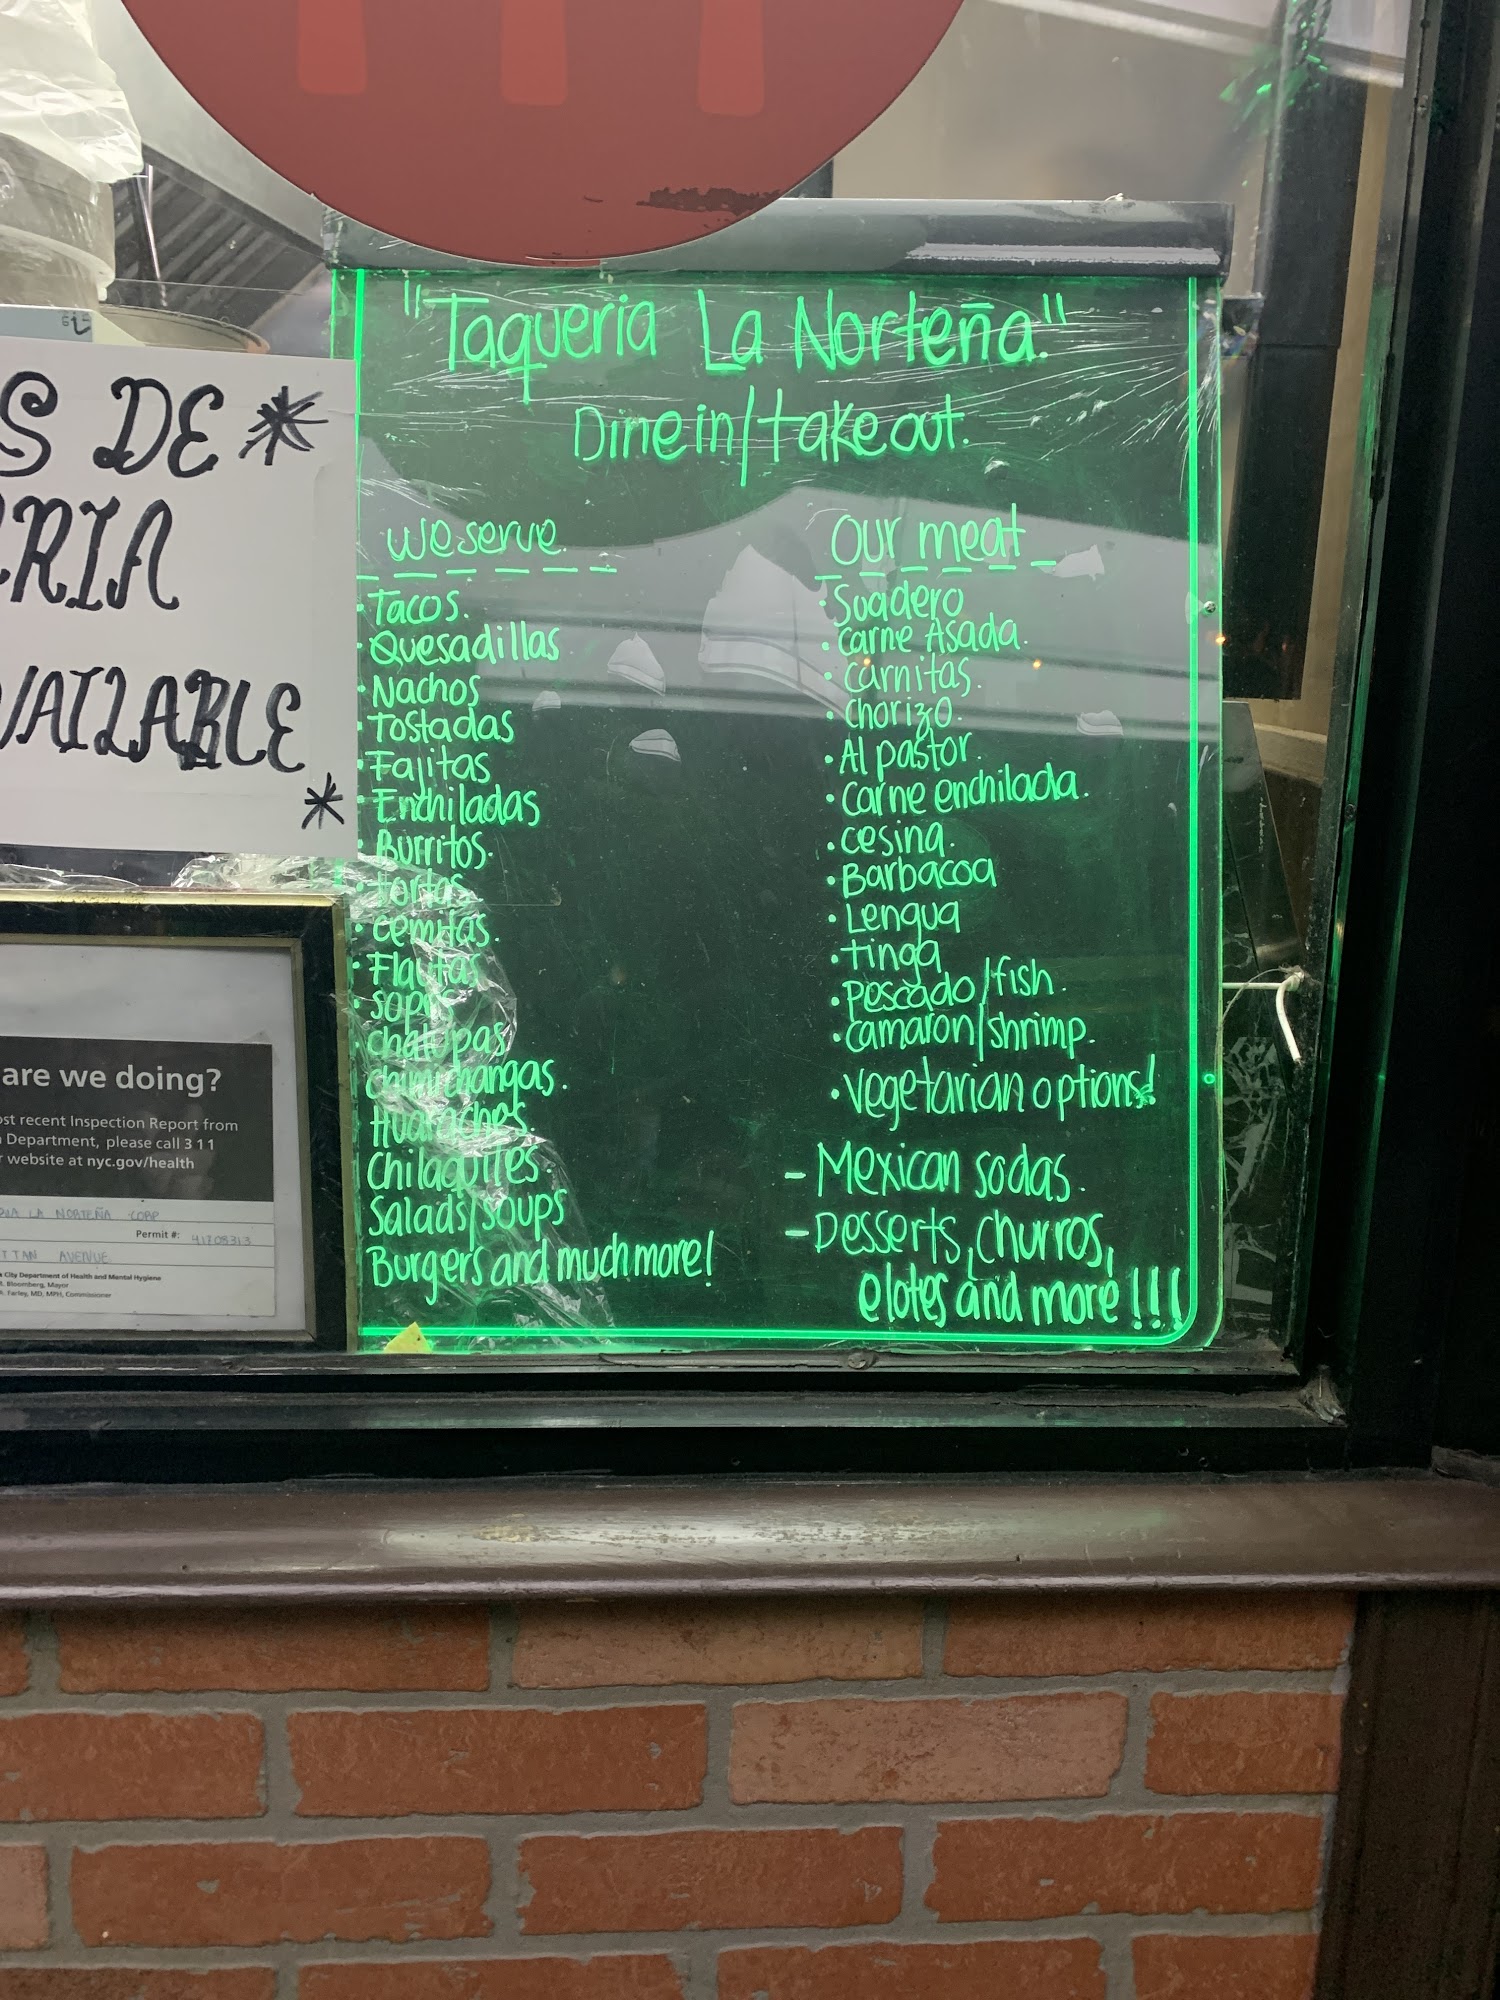 "Taqueria La Norteña."
Dine in/takeout.
We serve.
• Tacos.
• Quesadillas
• Nachos
• Tostadas
• Fajitas
• Enchiladas
• Burritos.
• tortas
• cemitas.
• Flautas
• sopes
• chalupas
chimichangas.
Huaraches.
Chilaquiles.
Salads/soups
Burgers and much more!
Our meat
• Suadero
• carne Asada.
• carnitas.
• chorizo.
• Al pastor.
• carne enchilada.
• cesina.
• Barbacoa
• Lengua
• tinga
• pescado/fish.
• camaron/shrimp.
• vegetarian options!
- Mexican sodas.
- Desserts, churros,
elotes and more !!!
S DE *
RIA
VAILABLE
*
are we doing?
ost recent Inspection Report from
Department, please call 311
website at nyc.gov/health
LA NORTEÑA CORP
Permit #: 41708313
TTAN AVENUE
City Department of Health and Mental Hygiene
Bloomberg, Mayor
Farley, MD, MPH, Commissioner